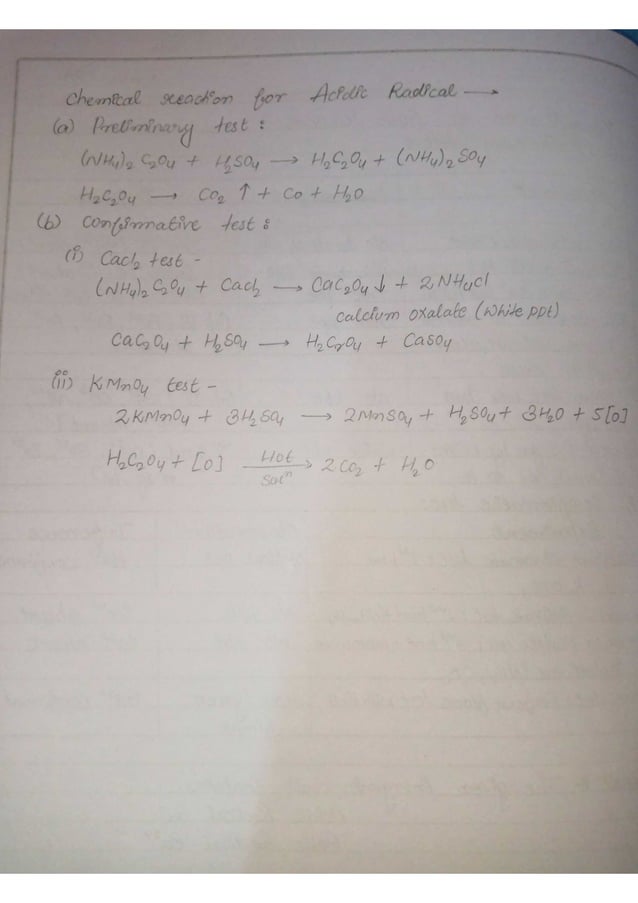 Chemical reaction for Acidic Radical →
(a) Preliminary test :
(NH4)2 C2O4 + H2SO4 → H2C2O4 + (NH4)2 SO4
H2C2O4 → CO2 ↑ + CO + H2O
(b) Confirmative test :
(i) CaCl2 test -
(NH4)2 C2O4 + CaCl2 → CaC2O4 ↓ + 2NH4Cl
calcium oxalate (white ppt)
CaC2O4 + H2SO4 → H2C2O4 + CaSO4
(ii) KMnO4 test -
2KMnO4 + 3H2SO4 → 2MnSO4 + H2SO4 + 3H2O + 5[O]
H2C2O4 + [O] Hot Soln → 2CO2 + H2O